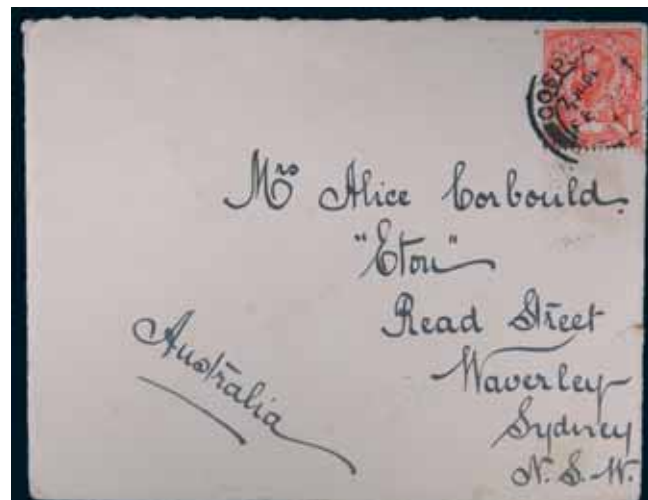 Mrs Alice Corbould.
"Eton"
Read Street
Waverley
Sydney
N. S. W.
Australia